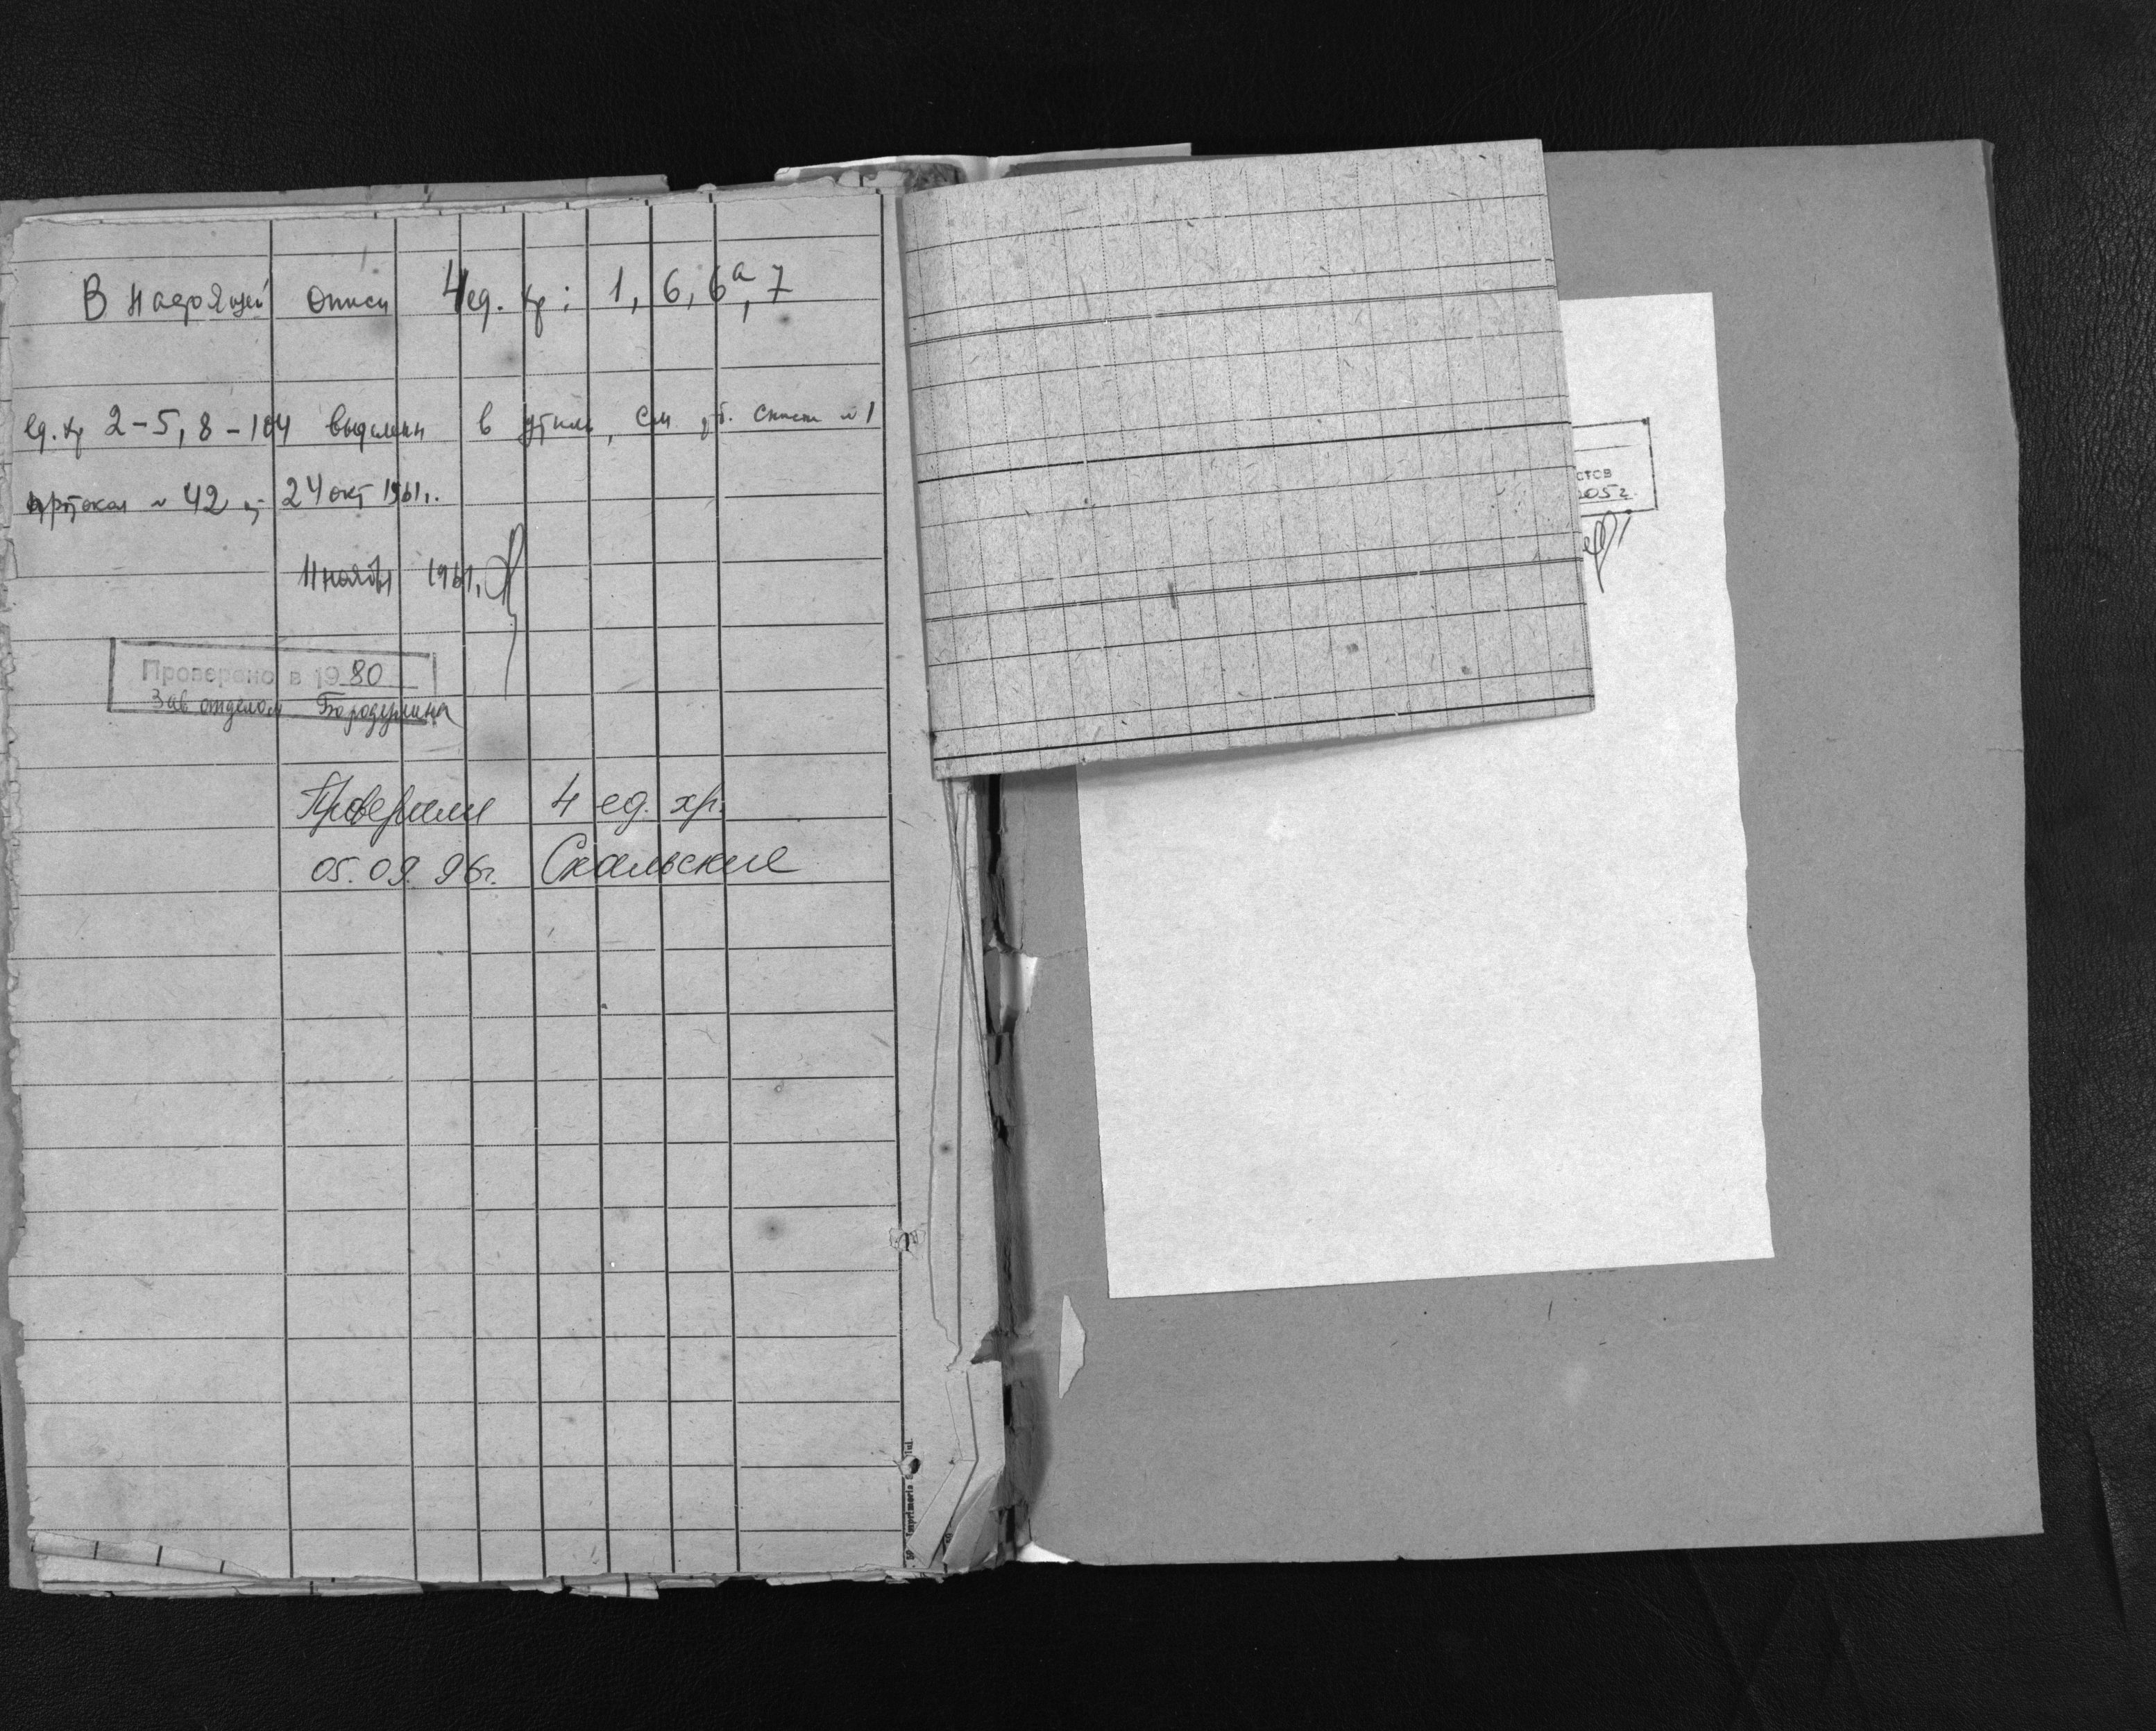 В настоящей описи 4 ед. хр: 1, 6, 6а, 7
ед. хр 2-5, 8-104 выделены в утиль, см список №1
протокол № 42 от 24 окт 1961г.
11 ноября 1961.
Проверено в 1980
Зав отделом Бородулина
Проверили 4 ед. хр.
05.09.96г. Скальские
стов
05г.
Imprimeria